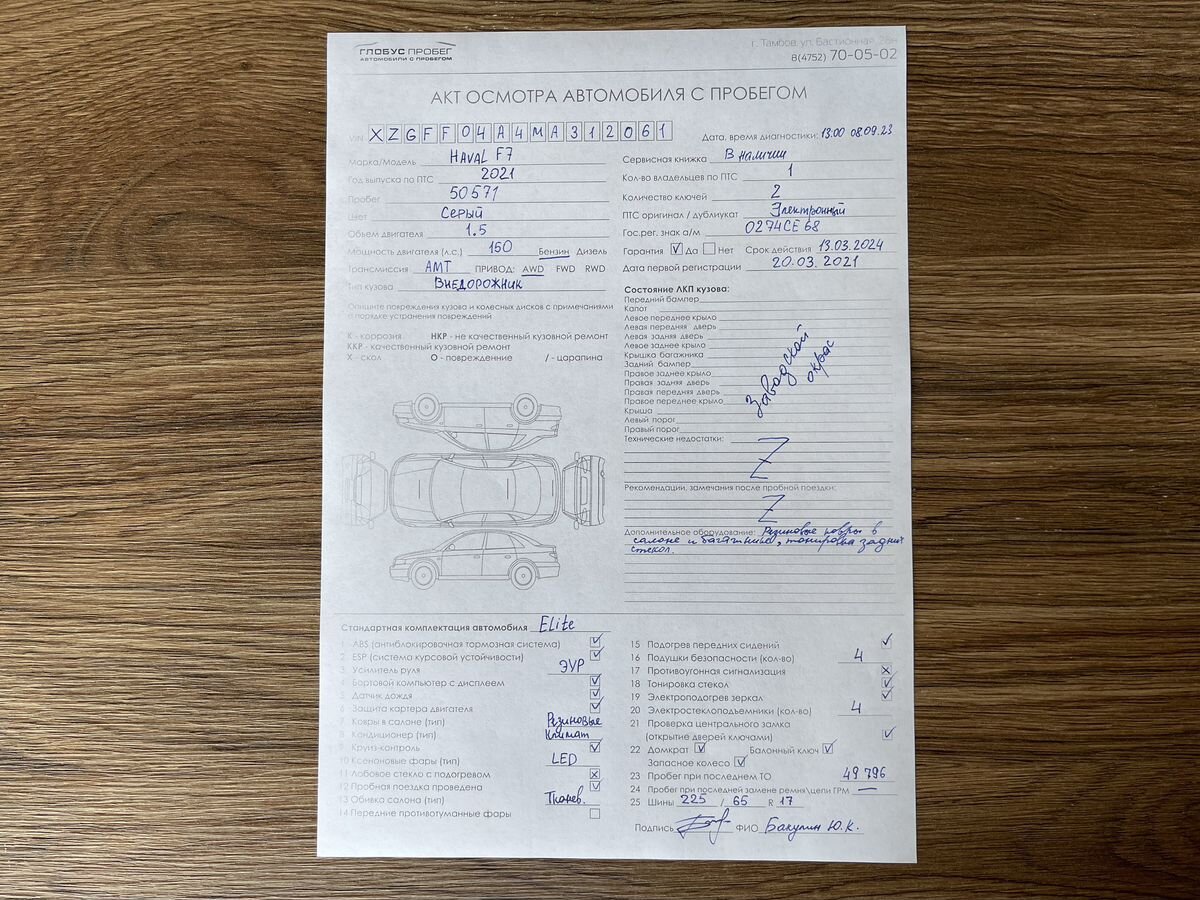 ГЛОБУС ПРОБЕГ
АВТОМОБИЛИ С ПРОБЕГОМ
г. Тамбов, ул. Бастионная, 28н
8(4752) 70-05-02
АКТ ОСМОТРА АВТОМОБИЛЯ С ПРОБЕГОМ
VIN XZGFF04A4MA312061
Дата, время диагностики: 13.00 08.09.23
Марка/Модель HAVAL F7
Год выпуска по ПТС 2021
Пробег 50571
Цвет Серый
Объем двигателя 1.5
Мощность двигателя (л.с.) 150 Бензин Дизель
Трансмиссия АМТ ПРИВОД: AWD FWD RWD
Тип кузова ВНЕДОРОЖНИК
Сервисная книжка В наличии
Кол-во владельцев по ПТС 1
Количество ключей 2
ПТС оригинал / дубликат Электронный
Гос.рег. знак а/м О274СЕ68
Гарантия Да Нет Срок действия 13.03.2024
Дата первой регистрации 20.03.2021
Опишите повреждения кузова и колесных дисков с примечаниями
о порядке устранения повреждений
К - коррозия НКР - не качественный кузовной ремонт
ККР - качественный кузовной ремонт
Х - скол О - повреждение / - царапина
Состояние ЛКП кузова:
Передний бампер
Капот
Левое переднее крыло
Левая передняя дверь
Левая задняя дверь
Левое заднее крыло
Крышка багажника
Задний бампер
Правое заднее крыло
Правая задняя дверь
Правая передняя дверь
Правое переднее крыло
Крыша
Левый порог
Правый порог
Заводской
окрас
Технические недостатки: Z
Рекомендации, замечания после пробной поездки:
Z
Дополнительное оборудование: Резиновые ковры в
салоне и багажнике, тонировка задних
стекол.
Стандартная комплектация автомобиля Elite
1 ABS (антиблокировочная тормозная система)
2 ESP (система курсовой устойчивости)
3 Усилитель руля ЭУР
4 Бортовой компьютер с дисплеем
5 Датчик дождя
6 Защита картера двигателя
7 Ковры в салоне (тип) Резиновые
8 Кондиционер (тип) Климат
9 Круиз-контроль
10 Ксеноновые фары (тип) LED
11 Лобовое стекло с подогревом
12 Пробная поездка проведена
13 Обивка салона (тип) Тканев.
14 Передние противотуманные фары
15 Подогрев передних сидений
16 Подушки безопасности (кол-во) 4
17 Противоугонная сигнализация
18 Тонировка стекол
19 Электроподогрев зеркал
20 Электростеклоподъемники (кол-во) 4
21 Проверка центрального замка
(открытие дверей ключами)
22 Домкрат Балонный ключ
Запасное колесо
23 Пробег при последнем ТО 49 796
24 Пробег при последней замене ремня\цепи ГРМ —
25 Шины 225 / 65 R 17
Подпись ФИО Бакулин Ю.К.